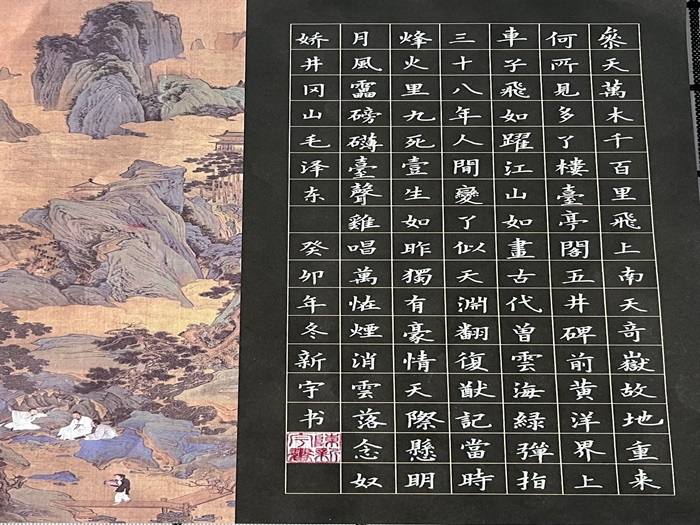 叅天萬木千百里飛上南天奇嶽故地重来
何所見多了樓臺亭閣五井碑前黄洋界上
車子飛如躍江山如畫古代曾雲海緑彈指
三十八年人間變了似天淵翻復猷記當時
烽火里九死壹生如昨獨有豪情天際懸明
月風靁磅礴臺聲雞唱萬怪煙消雲落念奴
娇井冈山毛泽东 癸卯年冬新宇书